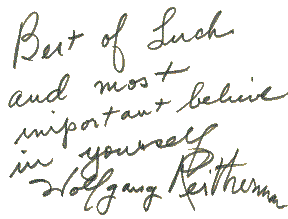 Best of Luck
and most
important believe
in yourself
Wolfgang Reitherman